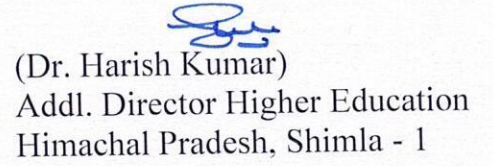 (Dr. Harish Kumar)
Addl. Director Higher Education
Himachal Pradesh, Shimla - 1